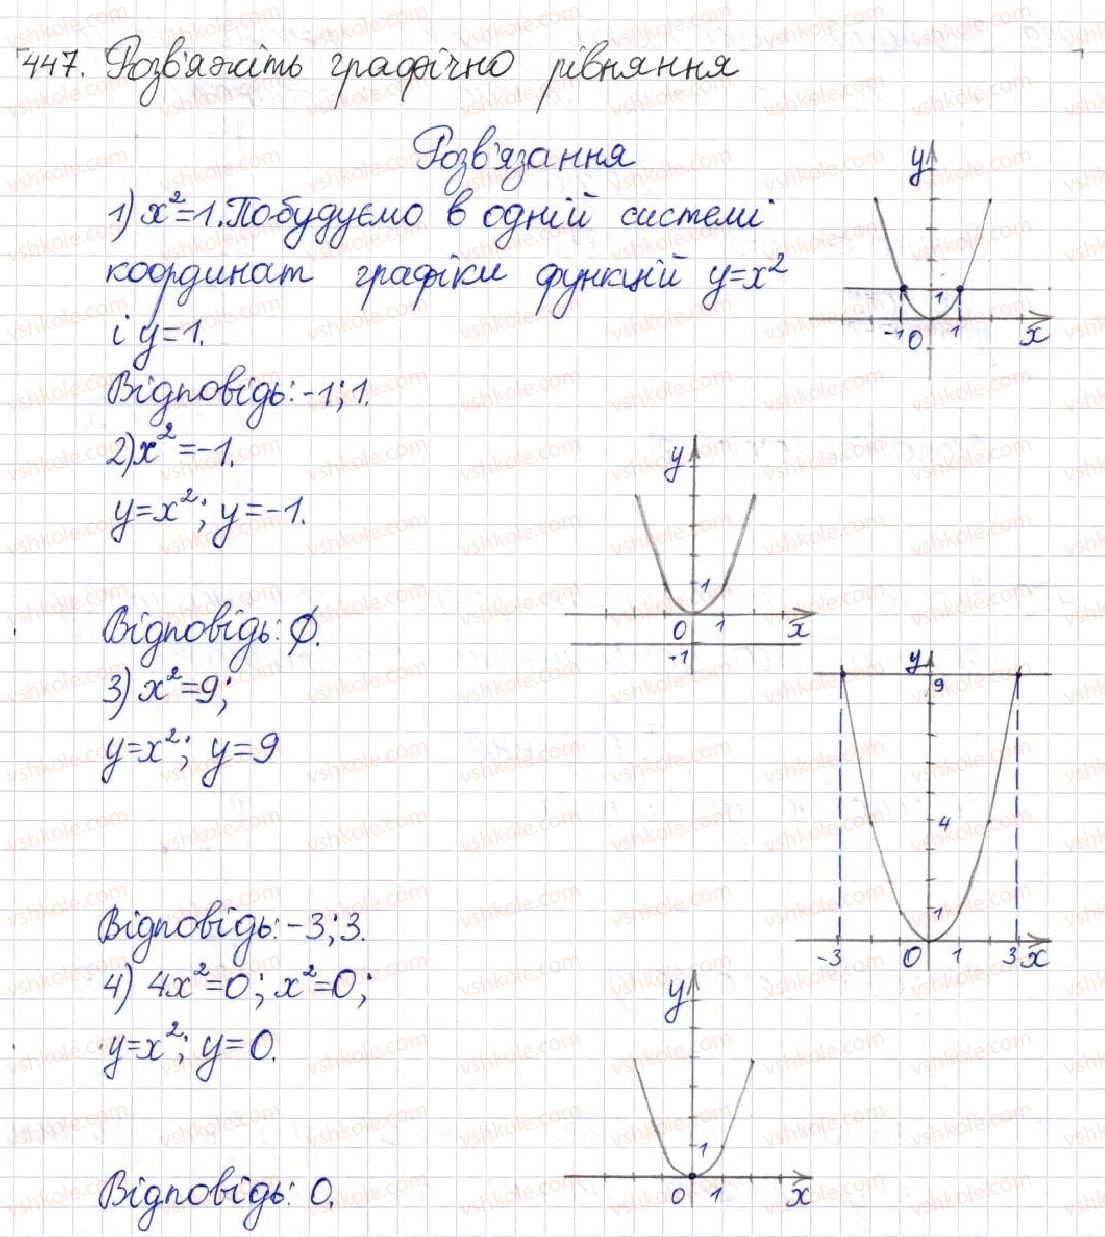 447. Розв'яжіть графічно рівняння
Розв'язання
1) x²=1. Побудуємо в одній системі
координат графіки функцій y=x²
і y=1.
Відповідь: -1; 1.
2) x²=-1.
y=x²; y=-1.
Відповідь: ∅.
3) x²=9;
y=x²; y=9
Відповідь: -3; 3.
4) 4x²=0; x²=0;
y=x²; y=0.
Відповідь: 0.
y
1
-1 0 1 x
y
1
0 1 x
-1
y
9
4
1
-3 0 1 3 x
y
1
0 1 x
vshkole.com